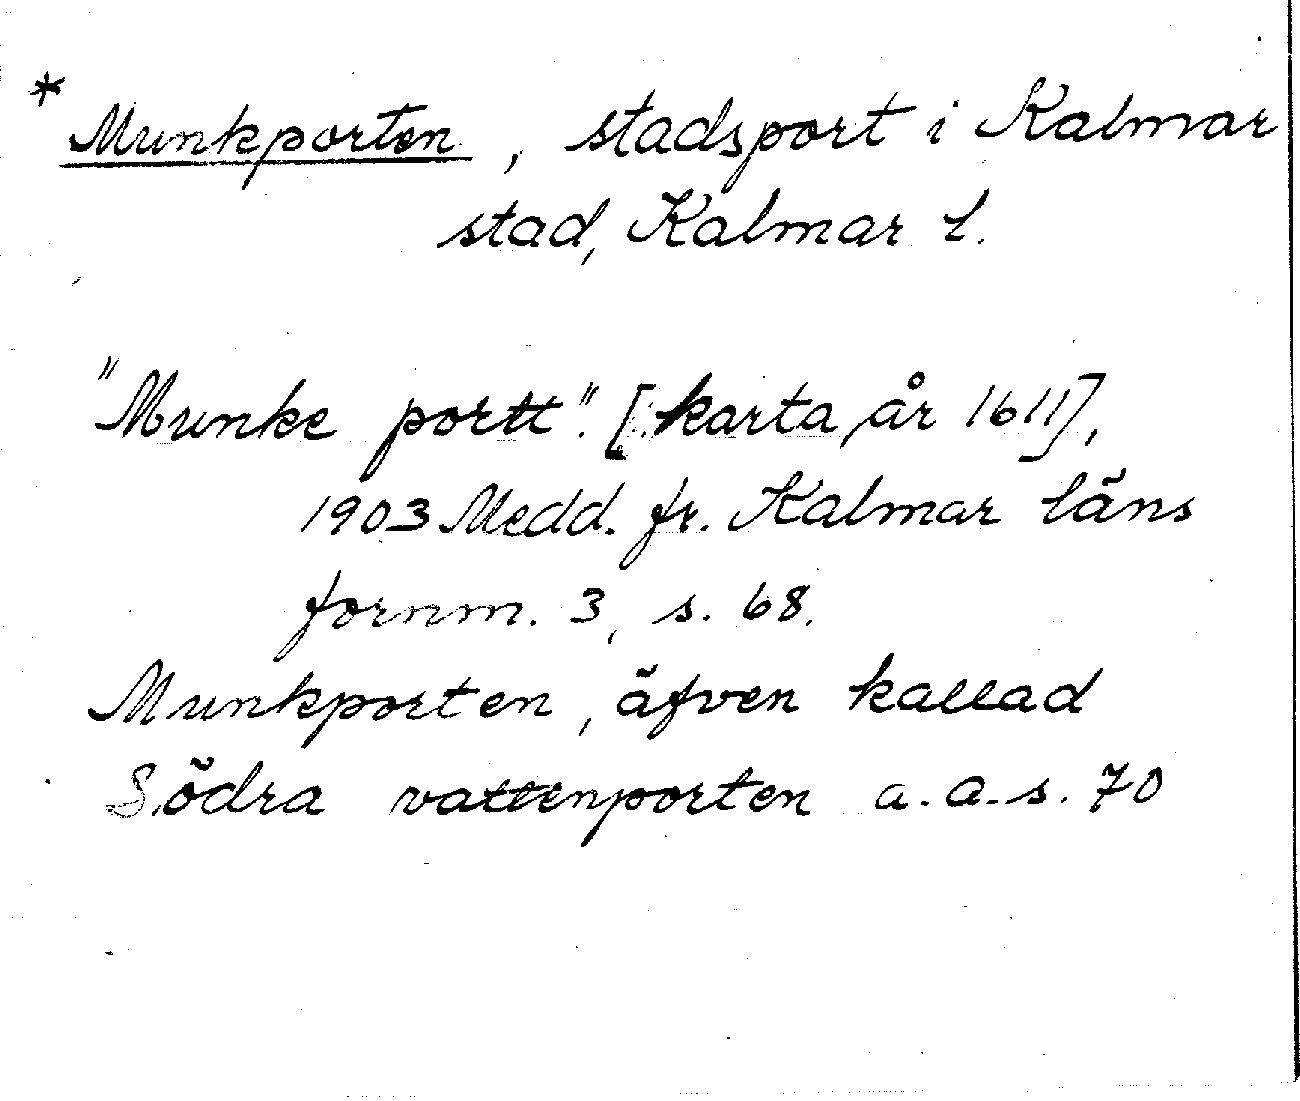 * Munkporten, stadsport i Kalmar
stad, Kalmar l.
"Munke portt". [karta, år 1611],
1903 Medd. fr. Kalmar läns
fornm. 3, s. 68.
Munkporten, äfven kallad
Södra vattenporten a.a.s. 70